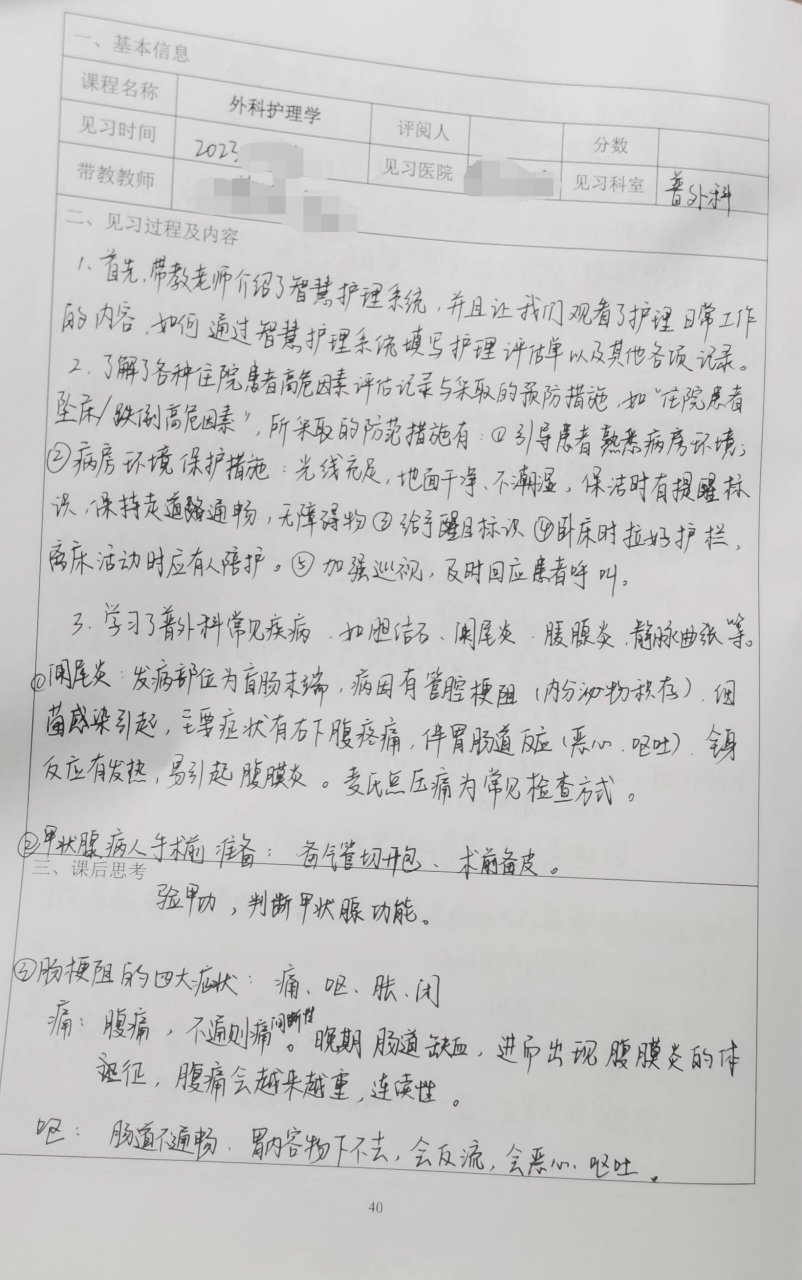 一、基本信息
课程名称 外科护理学 评阅人 分数
见习时间 2023 见习医院 见习科室 普外科
带教教师
二、见习过程及内容
1、首先,带教老师介绍了智慧护理系统,并且让我们观看了护理日常工作
的内容,如何通过智慧护理系统填写护理评估单以及其他各项记录。
2、了解了各种住院患者高危因素评估记录与采取的预防措施,如"住院患者
坠床/跌倒高危因素",所采取的防范措施有:①引导患者熟悉病房环境;
②病房环境保护措施:光线充足,地面干净、不潮湿,保洁时有提醒标
识,保持走道路通畅,无障碍物③给予醒目标识④卧床时拉好护栏,
离床活动时应有人陪护。⑤加强巡视,及时回应患者呼叫。
3、学习了普外科常见疾病,如胆结石、阑尾炎、腹膜炎、静脉曲张等。
①阑尾炎:发病部位为盲肠末端,病因有管腔梗阻(内分泌物积存)、细
菌感染引起,主要症状有右下腹疼痛,伴胃肠道反应(恶心、呕吐)、全身
反应有发热,易引起腹膜炎。麦氏点压痛为常见检查方式。
②甲状腺病人手术前准备:备气管切开包、术前备皮。
三、课后思考
验甲功,判断甲状腺功能。
③肠梗阻的四大症状:痛、呕、胀、闭
痛:腹痛,不通则痛间断性。晚期肠道缺血,进而出现腹膜炎的体
征,腹痛会越来越重,连续性。
呕:肠道不通畅,胃内容物下不去,会反流,会恶心、呕吐。
40